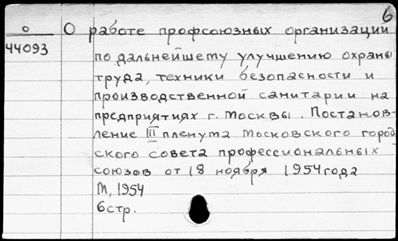 6
О
44093
О работе профсоюзных организаций
по дальнейшему улучшению охраны
труда, техники безопасности и
производственной санитарии на
предприятиях г. Москвы. Постанов-
ление III пленума Московского город-
ского совета профессиональных
союзов от 18 ноября 1954 года
М, 1954
6 стр.